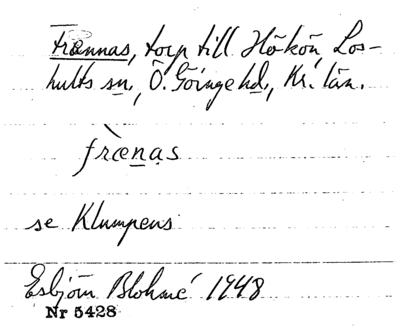 Frænnas, torp till Hökön, Los-
hults sn., Ö. Göinge hd., Kr. län.
fræ̀nas
se Klumpens
Esbjörn Blohmé 1948
Nr 5428